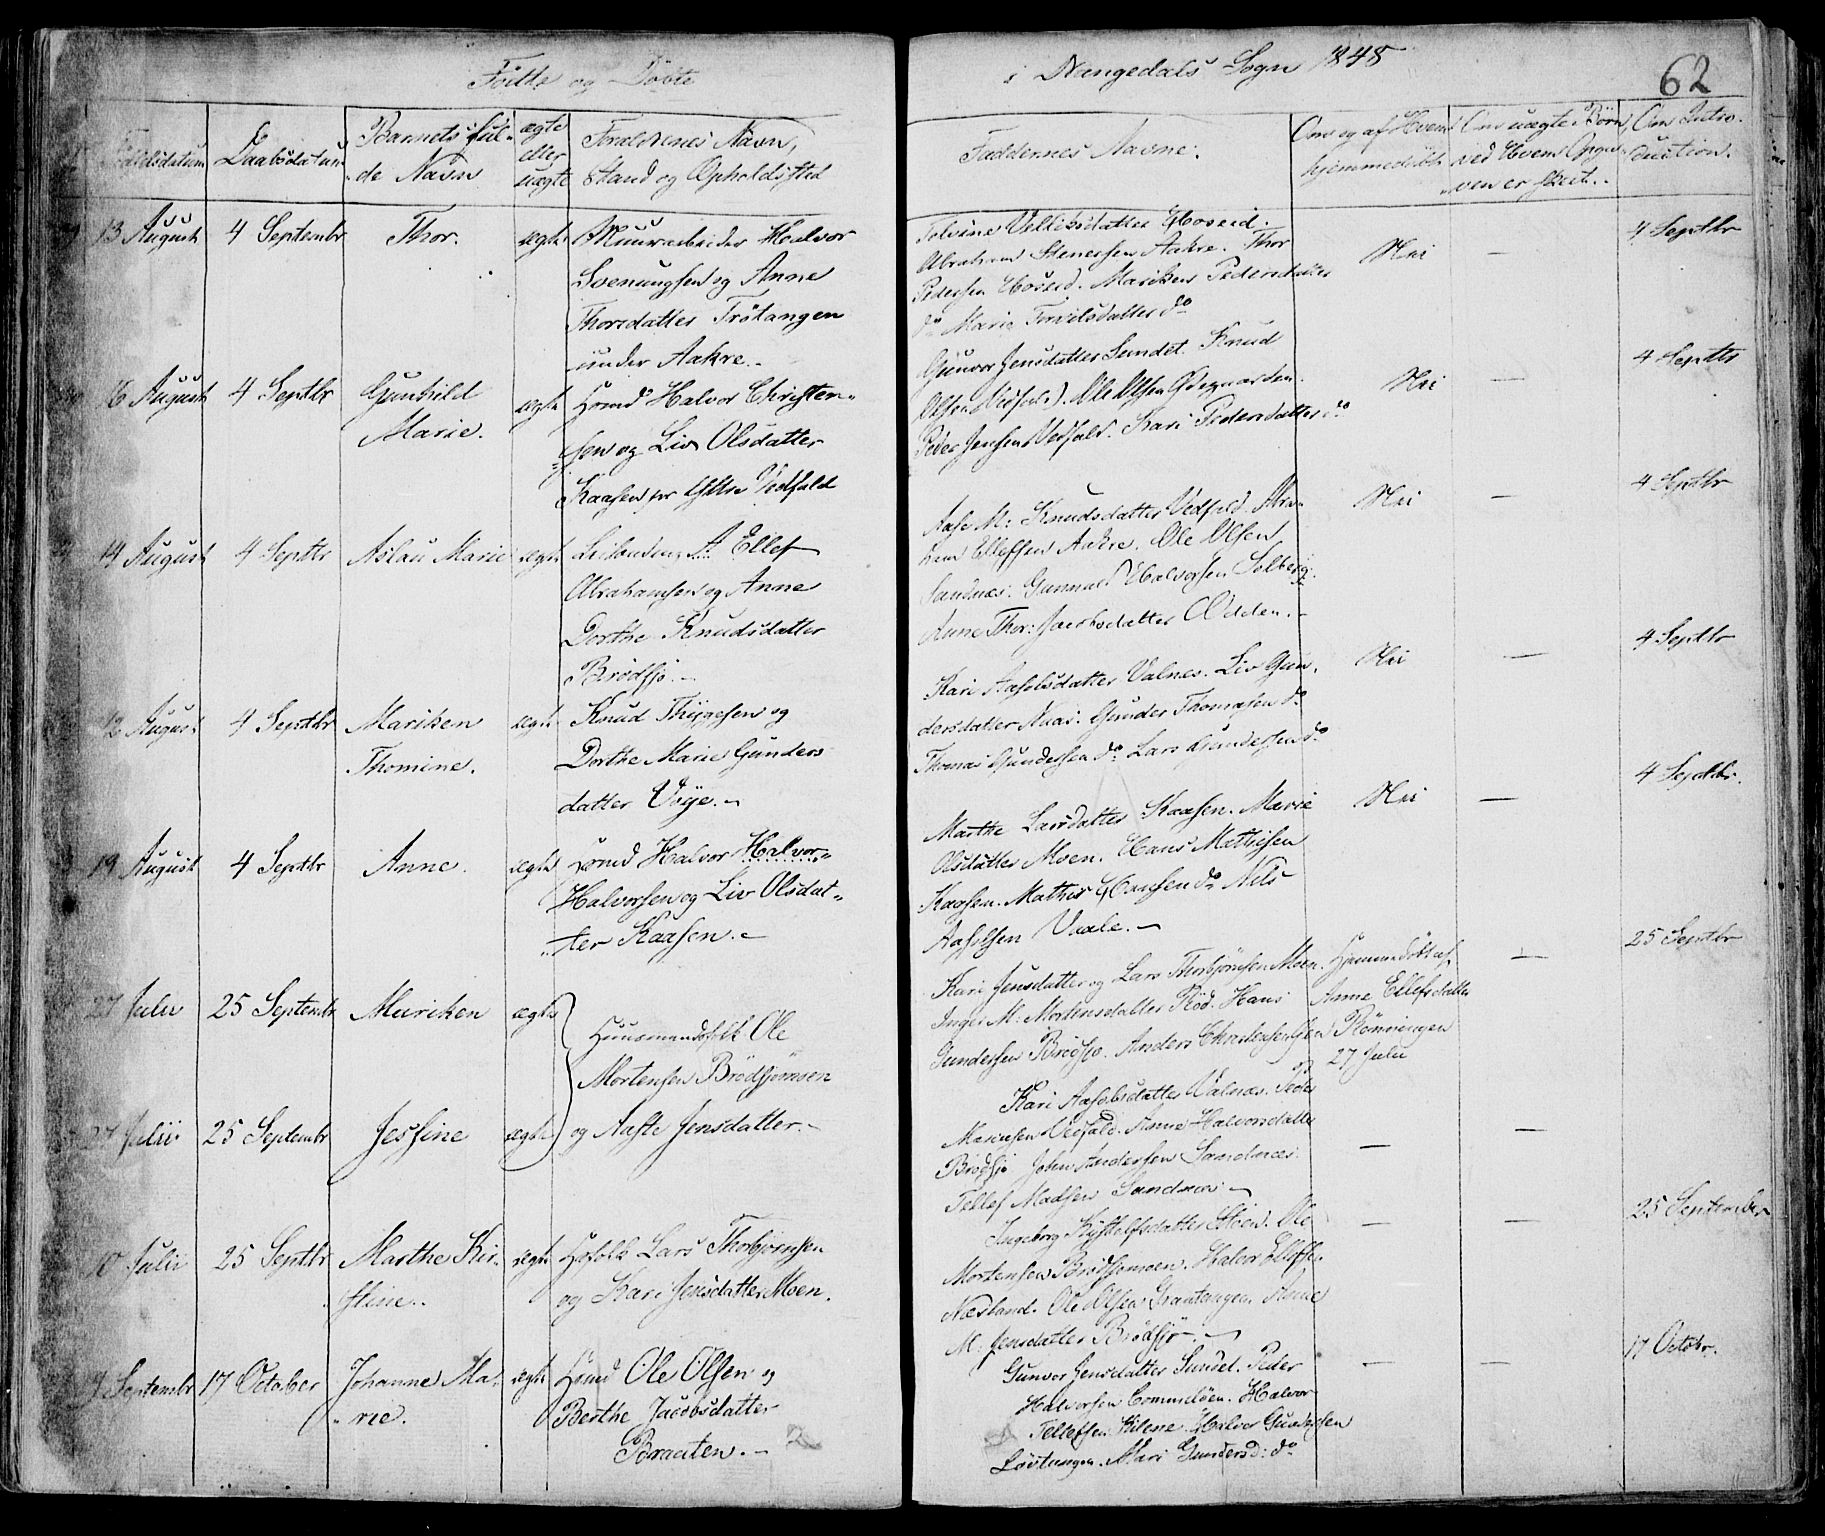 Födte og Döbte
i Nangedals Sogn 1848
62
Födselsdatum
Daabsdatum
Barnets ful-
de Navn
ægte
eller
uægte
Forældrenes Navn,
Stand og Opholdssted
Faddernes Navne.
Om og af Hvem
hjemmedöbt
Om uægte Börn,
ved Hvem Opgi-
ven er skeet.
Om Intro-
duction.
13 August
4 Septembr
Thor.
ægte
Muurarbeider Halvor
Svenungsen og Anne
Thorsdatter Trötangen
under Aakre.
Abraham Stenersen Aakre. Thor
Pedersen Hoseid. Mariken Pedersdatter
do Marie Torvilsdatter do
Nei
—
4 Septbr
16 August
4 Septbr
Gunhild
Marie.
ægte
Huusmd Halvor Christen-
sen og Liv Olsdatter
Kaasen pr Yttre Vedfald
Gunvor Jensdatter Sundet. Knud
Olsen Vedfald. Ole Olsen Ödegaarden.
Peder Jensen Vedfald. Kari Pedersdatter do
Nei
—
4 Septbr
14 August
4 Septbr
Aslau Marie
ægte
Ellef
Abrahamsen og Anne
Dorthe Knudsdatter
Brödsjö.
Aase M: Knudsdatter Vedfald. Abra-
ham Ellefsen Aakre. Ole Olsen
Sandnæs. Gunnar Halvorsen Solberg.
Anne Thor: Jacobsdatter Odden.
Nei
—
4 Septbr
12 August
4 Septbr
Mariken
Thomine.
ægte
Knud Thygesen og
Dorthe Marie Gunders
datter Vöye.
Kari Aasolsdatter Valnes. Liv Gun-
dersdatter Naas. Gunder Thomasen do
Thomas Gundersen do Lars Gundersen do
Nei
—
4 Septbr
19 August
4 Septbr
Anne.
ægte
Halvor Halvor-
Halvorsen og Liv Olsdat-
ter Kaasen.
Marthe Larsdatter Kaasen. Marie
Olsdatter Moen. Hans Mathisen
Kaasen. Mathis Hansen do Nils
Aasolsen Vaale.
Nei
—
4 Septbr.
27 Julii
25 Septembr
Mariken
ægte
Huusmandsfolk Ole
Mortensen Brödsjömoen
Kari Jensdatter og Lars Thorbjörnsen Moen.
Inger M: Mortensdatter Röd. Hans
Gundersen Brödsjö. Anders Christensen
Hjemmedöbt af
Anne Ellefsdatter
Rönningen
27 Julii
—
25 Septbr
27 Julii
25 Septembr
Jessine
ægte
og Aaste Jensdatter.
Kari Aasolsdatter Valnæs. Peder
Vedfald. Anne Halvorsdatter
Brödsjö John Andersen Sandnæs.
Tellef Madsen Sandnæs
—
—
10 Julii
25 Septbr
Marthe Kir-
stine.
ægte
Hsfolk Lars Thorbjörnsen
og Kari Jensdatter Moen.
Ingeborg Stoen. Ole
Mortensen Brödsjömoen. Halvor Ellefsen
Næsland. Ole Olsen Grantangen Anne
M. Jensdatter Brödsjö.
—
—
25 September
9 Septembr
17 October
Johanne Ma-
rie.
ægte
Huusmd Ole Olsen og
Berthe Jacobsdatter
Braaten.
Gunvor Jensdatter Sundet. Peder
Halvorsen Halvor
Tellefsen Kilene. Halvor Gundersen
Lövtangen. Mari Gundersd: do
—
—
17 Octobr.